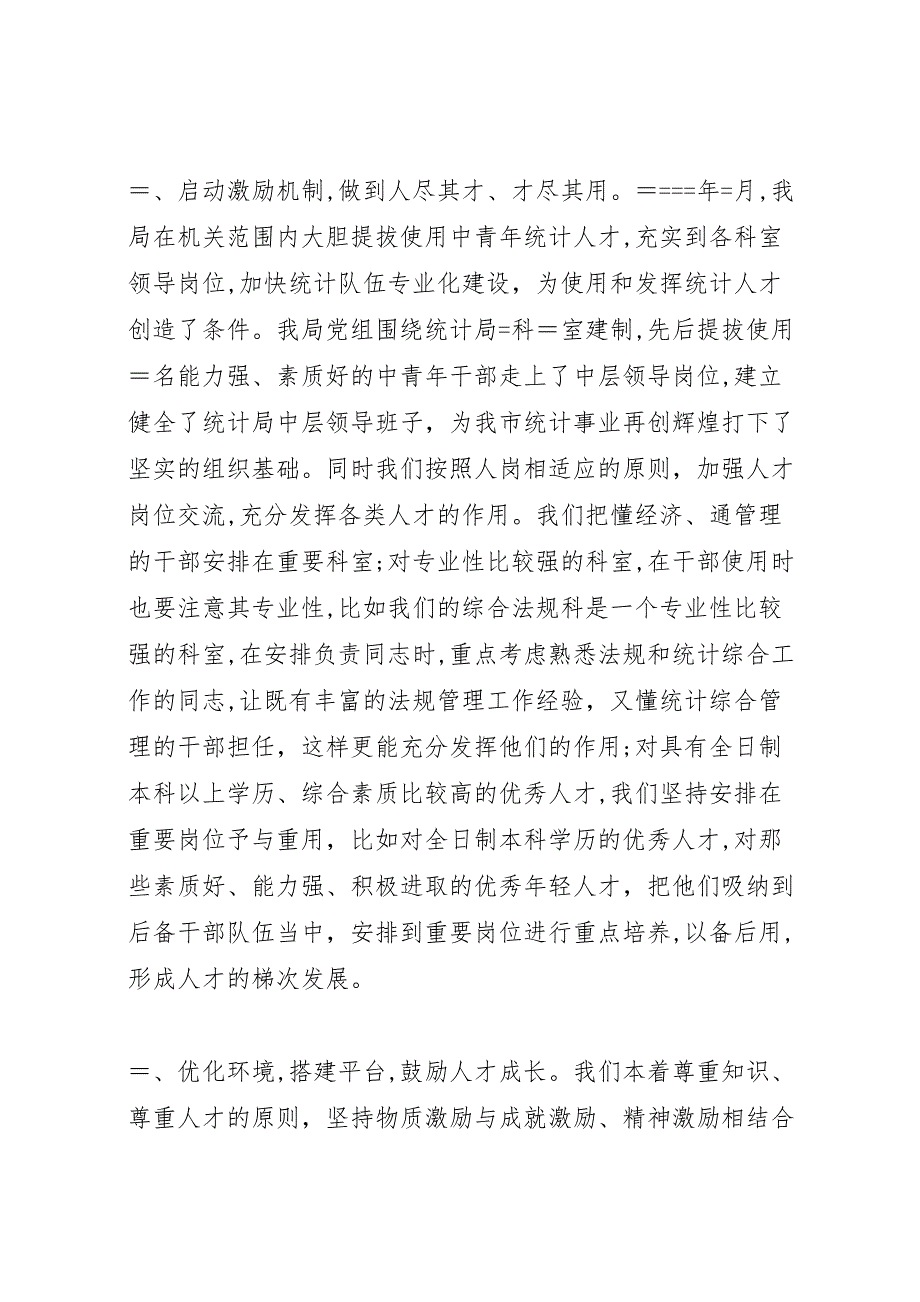 ＝、启动激励机制,做到人尽其才、才尽其用。＝===年=月,我
局在机关范围内大胆提拔使用中青年统计人才,充实到各科室
领导岗位,加快统计队伍专业化建设，为使用和发挥统计人才
创造了条件。我局党组围绕统计局=科＝室建制,先后提拔使用
＝名能力强、素质好的中青年干部走上了中层领导岗位,建立
健全了统计局中层领导班子，为我市统计事业再创辉煌打下了
坚实的组织基础。同时我们按照人岗相适应的原则，加强人才
岗位交流,充分发挥各类人才的作用。我们把懂经济、通管理
的干部安排在重要科室;对专业性比较强的科室,在干部使用时
也要注意其专业性,比如我们的综合法规科是一个专业性比较
强的科室,在安排负责同志时,重点考虑熟悉法规和统计综合工
作的同志,让既有丰富的法规管理工作经验，又懂统计综合管
理的干部担任，这样更能充分发挥他们的作用;对具有全日制
本科以上学历、综合素质比较高的优秀人才,我们坚持安排在
重要岗位予与重用，比如对全日制本科学历的优秀人才,对那
些素质好、能力强、积极进取的优秀年轻人才，把他们吸纳到
后备干部队伍当中，安排到重要岗位进行重点培养,以备后用,
形成人才的梯次发展。
＝、优化环境,搭建平台,鼓励人才成长。我们本着尊重知识、
尊重人才的原则，坚持物质激励与成就激励、精神激励相结合